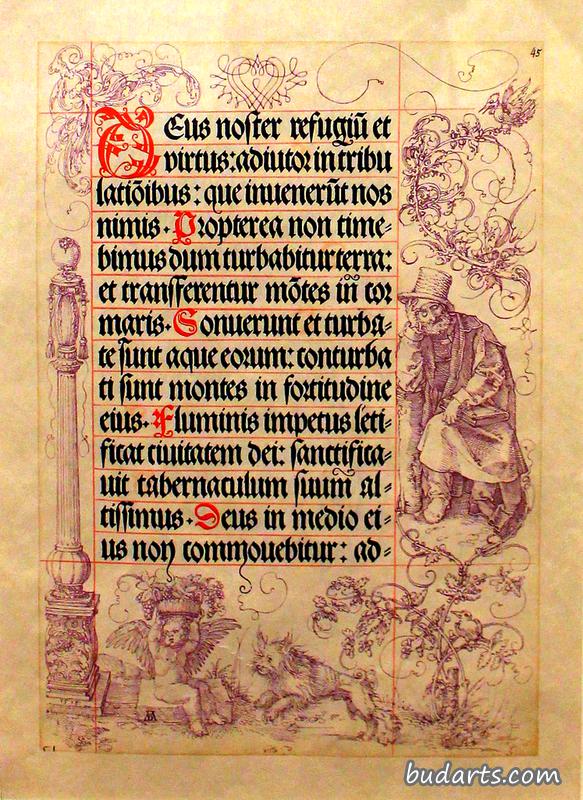 45
Deus noster refugiū et
virtus: adiutor in tribu
latiōibus: que inuenerūt nos
nimis. Propterea non time-
bimus dum turbabitur terra:
et transferentur mōtes in cor
maris. Sonuerunt et turba-
te sunt aque eorum: conturba
ti sunt montes in fortitudine
eius. Fluminis impetus leti-
ficat ciuitatem dei: sanctifica-
uit tabernaculum suum al-
tissimus. Deus in medio ei-
us non commouebitur: ad-
budarts.com